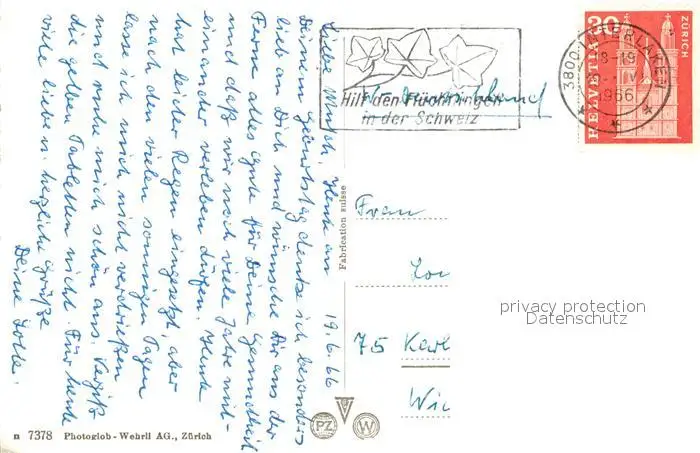 19.6.66
Liebe Mutsch, Heute an
Deinem Geburtstag denke ich besonders
lieb an Dich und wünsche Dir aus der
Ferne alles Gute für Deine Gesundheit
und daß wir noch viele Jahre mit-
einander verleben dürfen. Heute
hat leider Regen eingesetzt, aber
nach den vielen sonnigen Tagen
lasse ich mich nicht verdrießen
und ruhe mich schön aus. Vergiß
die gelben Tabletten nicht. Für heute
viele liebe u. herzliche Grüße
Deine Lotte.
Fabrication suisse
n 7378 Photoglob-Wehrli AG., Zürich
PZ W
Hilf den Flüchtlingen
in der Schweiz
3800 INTERLAKEN
1966
HELVETIA 30 ZÜRICH
Frau
75 Karl
privacy protection
Datenschutz